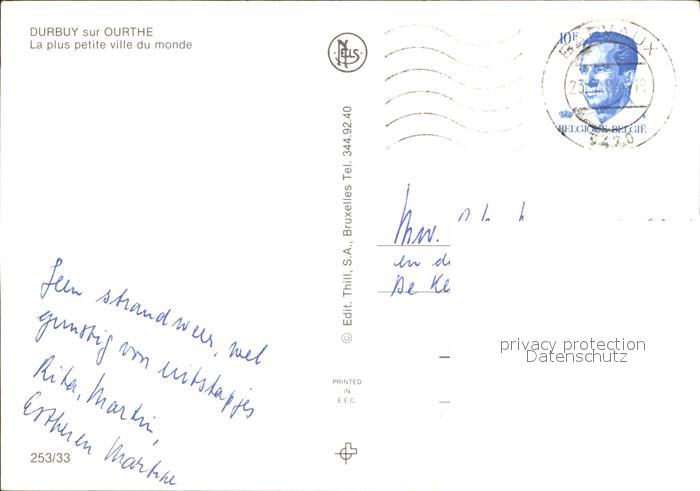 DURBUY sur OURTHE
La plus petite ville du monde
NELS
10F
BARVAUX
BELGIQUE BELGIË
5470
© Edit. Thill, S.A., Bruxelles Tel. 344.92.40
Mw.
en d
De Ke
Geen strandweer, wel
gunstig voor uitstapjes
Rita, Martin,
Esther en Martine
PRINTED
IN
E.E.C.
253/33
privacy protection
Datenschutz